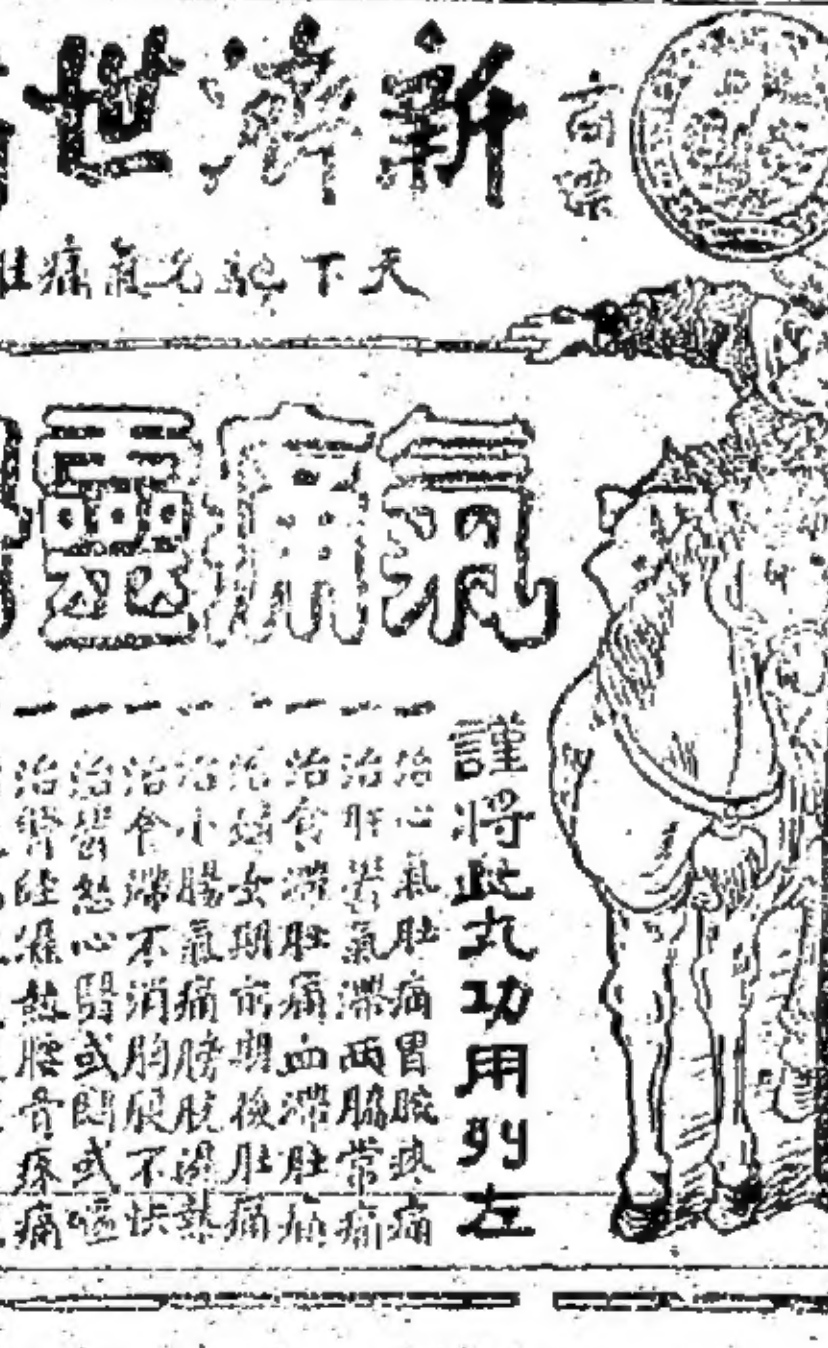 商標
新濟世
天下記名氣痛
氣痛靈
謹將此丸功用列左
一治心氣肚痛胃脘疼痛
一治肝鬱氣滯兩脇常痛
一治食滯肚痛血滯肚痛
一治婦女期前期後肚痛
一治小腸氣痛膀胱濕熱
一治食滯不消胸膈不快
一治鬱怒心翳或悶或嘔
一治腎經濕熱腰骨疼痛